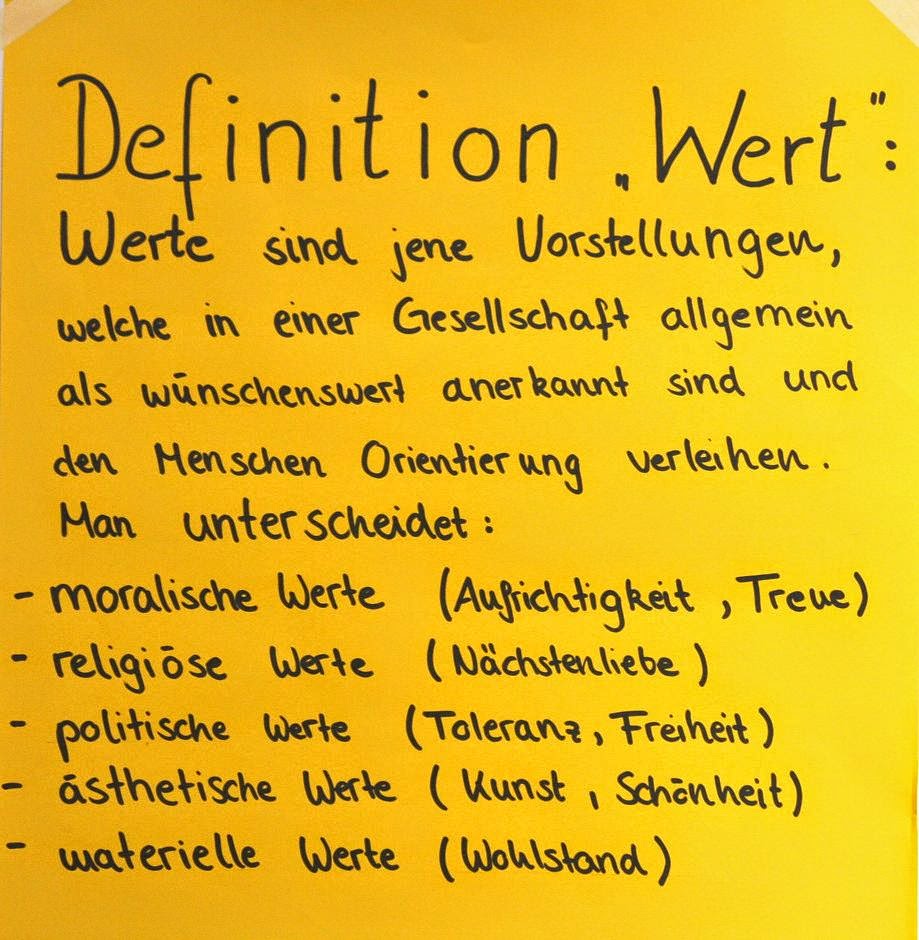 Definition „Wert":
Werte sind jene Vorstellungen,
welche in einer Gesellschaft allgemein
als wünschenswert anerkannt sind und
den Menschen Orientierung verleihen.
Man unterscheidet:
- moralische Werte (Aufrichtigkeit, Treue)
- religiöse Werte (Nächstenliebe)
- politische Werte (Toleranz, Freiheit)
- ästhetische Werte (Kunst, Schönheit)
- materielle Werte (Wohlstand)